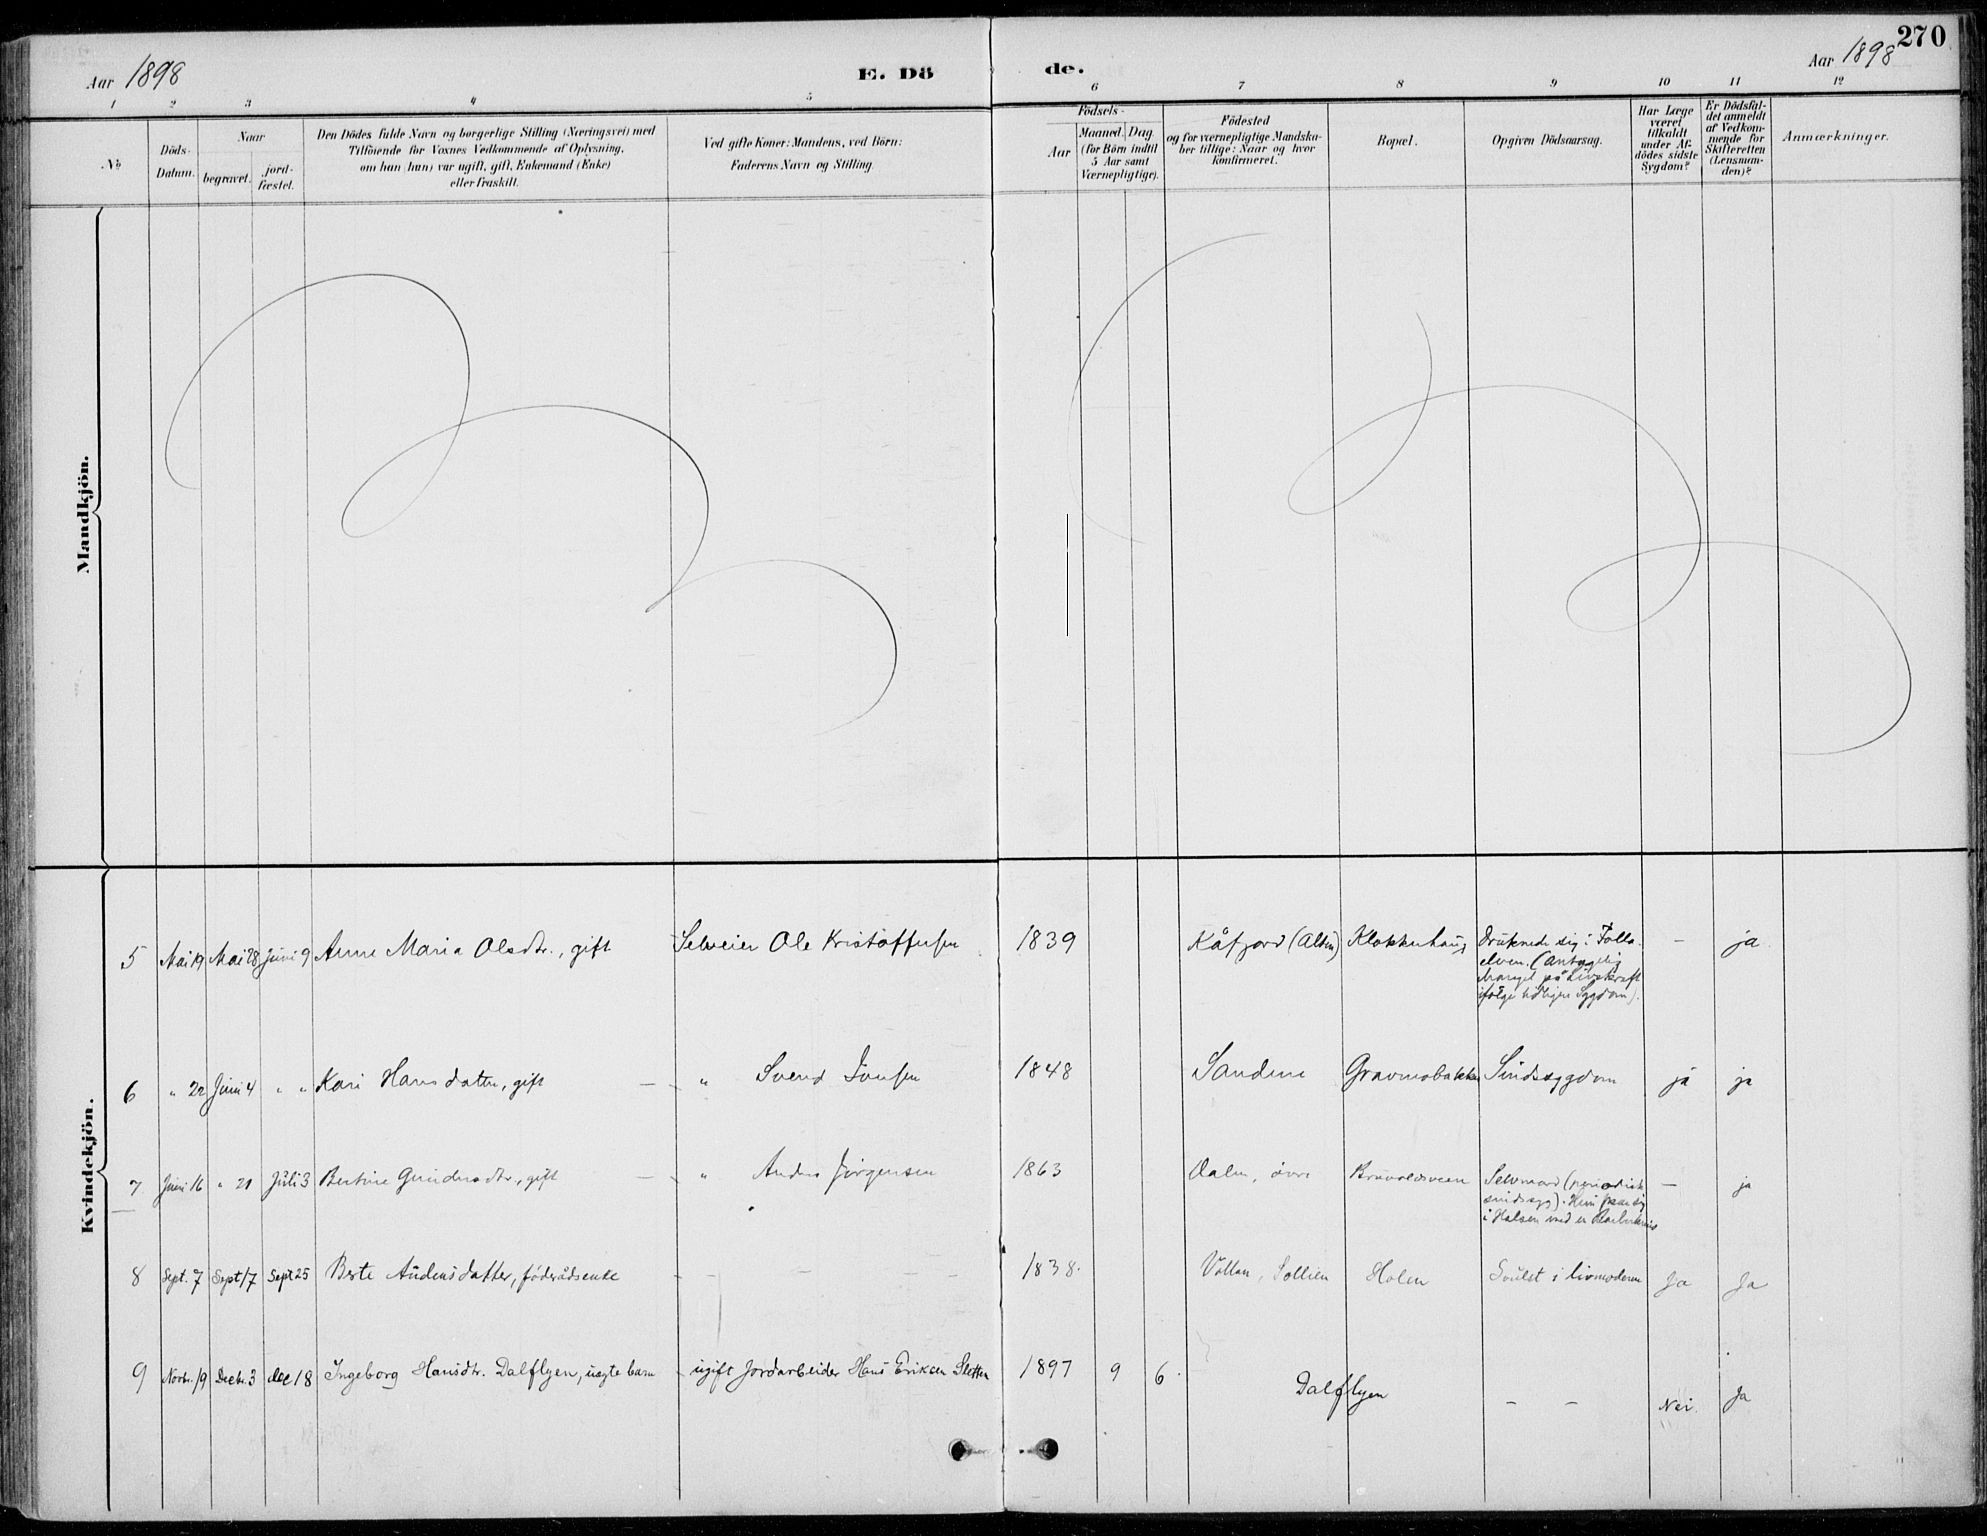 270
Aar 1898
E. Dö
de.
Aar 1898
1 2 3 4 5 6 7 8 9 10 11 12
No
Döds-
Datum.
Naar
begravet.
jord-
fæstet.
Den Dödes fulde Navn og borgerlige Stilling (Næringsvei) med
Tilföiende for Voxnes Vedkommende af Oplysning,
om han (hun) var ugift, gift, Enkemand (Enke)
eller fraskilt.
Ved gifte Koner: Mandens, ved Börn:
Faderens Navn og Stilling.
Födsels-
Aar
Maaned. Dag
(for Börn indtil
5 Aar samt
Værnepligtige).
Födested
og for værnepligtige Mandska-
ber tillige: Naar og hvor
konfirmeret.
Bopæl.
Opgiven Dödsaarsag.
Har Læge
været
tilkaldt
under Af-
dödes sidste
Sygdom?
Er Dödsfal-
det anmeldt
af Vedkom-
mende for
Skifteretten
(Lensman-
den)?
Anmærkninger.
Mandkjön.
Kvindekjön.
5 Mai 19 Mai 28 Juni 9 Anne Maria Olsdtr., gift Selveier Ole Kristoffersen 1839 Kåfjord (Alten) Klokkerhaug Druknede sig i Folla- – ja
elven. (Antagelig
Mangel på Livskraft
ifölge tidligere Sygdom).
6 " 22 Juni 4 " " Kari Hansdatter, gift — - " Svend Jonsen 1848 Sandene Gravmobakken Sindssygdom ja ja
7 Juni 16 " 21 Juli 3 Bertine Gundersdtr., gift — - " Anders Jörgensen 1863 Dalen, övre Selvmord (periodisk — ja
sindssyg). Hun skar sig
i Halsen med en Barberkniv
8 Sept. 7 Sept 17 Sept 25 Berte Audensdatter, föderådsenke - - - - 1838. Vollan, Sollien Holen Svulst i livmoderen Ja Ja
9 Novbr. 19 Decbr. 3 dec 18 Ingeborg Hansdtr. Dalflyen, uegte barn ugift Jordarbeider Hans Eriksen Sletten 1897 9 6. Dalflyen – – Nei. Ja